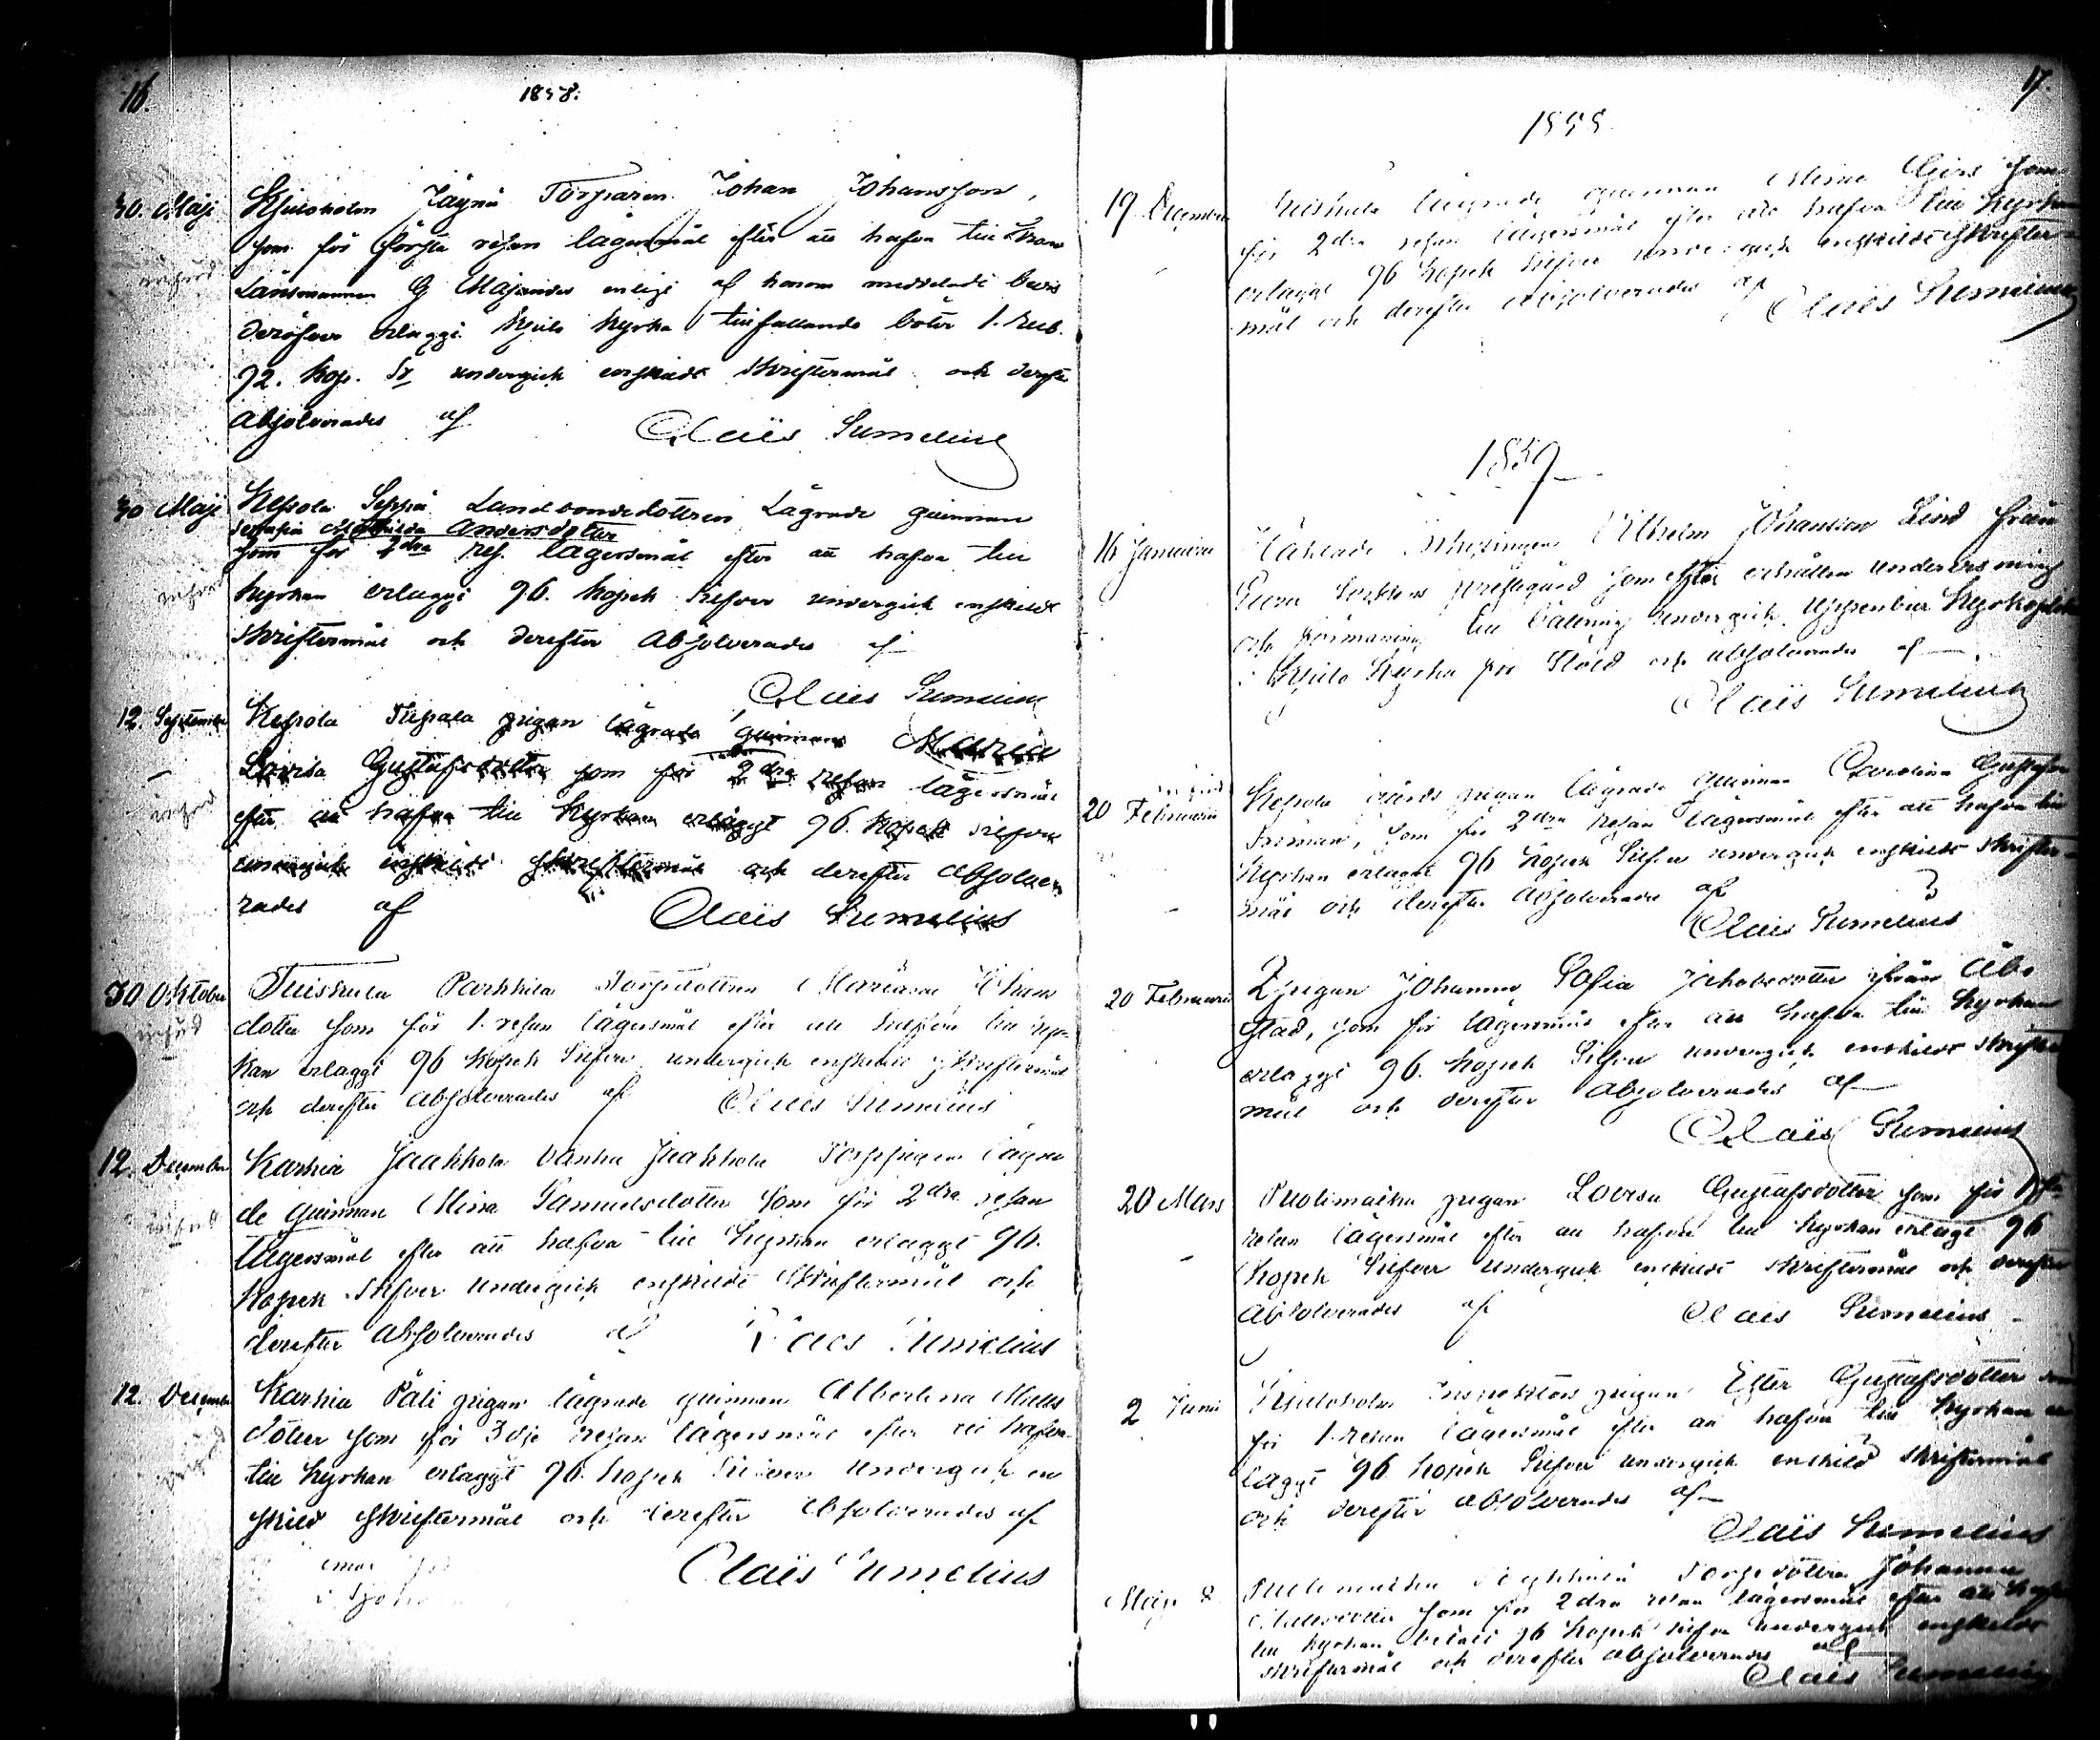 16.
1858.
30. Maji Kjuloholm Jäyrä Torparen Johan Johansson,
som för första resan lägersmål efter att hafva till Krono
Länsmannen G Majander enligt af honom meddeladt bevis
deröfver erlaggt Kjulo Kyrka tillfallande böter 1. Rub.
92. kop. Sr undergick enskildt skriftermål och derefter
absolverades af Claës Sumelius
införd
30 Maji Kepola Seppä Landbondedottren Lägrade qvinnan
Serafia Mathilda Andersdotter
som för 2dra res. lägersmål efter att hafva till
Kyrkan erlaggt 96. kopek Silfver undergick enskildt
skriftermål och derefter absolverades af
Claës Sumelius
införd
12. September Kepola pigan lägrade qvinnan Maria
Lovisa Gustafsdotter som för 2dra resan lägersmål
efter att hafva till Kyrkan erlaggt 96. kopek silfver
undergick enskildt skriftermål och derefter absolve
rades af Claës Sumelius
införd
30 Oktober Tuiskula Parkkila Torpdottren Mariana Johans
dotter som för 1. resan lägersmål efter att hafva till Kyr
kan erlaggt 96 kopek Silfver undergick enskildt skriftermål
och derefter absolverades af Claës Sumelius
införd
12. December Karhia Jaakkola Vanha Jaakkola Torppigan lägra
de qvinnan Mina Samuelsdotter som för 2dra resan
lägersmål efter att hafva till Kyrkan erlaggt 96.
kopek Silfver undergick enskildt skriftermål och
derefter absolverades af Claes Sumelius
införd
12. December Karhia Päli pigan lägrade qvinnan Albertina Matts
dotter som för 3dje resan lägersmål efter att hafva
till Kyrkan erlaggt 96. kopek Silfver undergick en
skild skriftermål och derefter absolverades af
Claës Sumelius
införd
17.
1858.
19 December lägrade qvinnan som
för 2dra resan lägersmål efter att hafva till Kyrkan
erlagt 96 kopek Silfver undergick enskildt skrifter-
mål och derefter absolverades af Claës Sumelius
1859
16 Januarii Vilhelm Johansson Lind från
Eura prestegård som efter erhållen undervisning
och förmaning till bättring undergick uppenbar Kyrkoplikt
i Kjulo Kyrka för Stöld och absolverades af
Claës Sumelius
20 Februarii Kepola gårds pigan lägrade qvinnan Carolina Gustafva
som för 2dra resan lägersmål efter att hafva till
Kyrkan erlagt 96 kopek Silfver undergick enskildt skrifter-
mål och derefter absolverades af
Claës Sumelius
20 Februarii Pigan Johanna Sofia Jakobsdotter från Åbo
stad, som för lägersmål efter att hafva till Kyrkan
erlaggt 96. kopek Silfver undergick enskildt skrifter
mål och derefter absolverades af
Claës Sumelius
20 Mars Puolimatka pigan Lovisa Gustafsdotter som för 1sta
resan lägersmål efter att hafva till Kyrkan erlagt 96
kopek Silfver undergick enskildt skriftermål och derefter
absolverades af Claës Sumelius
2 Junii Kjuloholm Inspektors pigan Ester Gustafsdotter som
för 1. resan lägersmål efter att hafva till Kyrkan er
laggt 96 kopek Silfver undergick enskild skriftermål
och derefter absolverades af
Claës Sumelius
Maji 8 Puolimatka Torpdottren Johanna
som för 2dra resan lägersmål efter att hafva
till kyrkan betalt 96 kopek silfver undergick enskildt
skriftermål och derefter absolverades af
Claës Sumelius